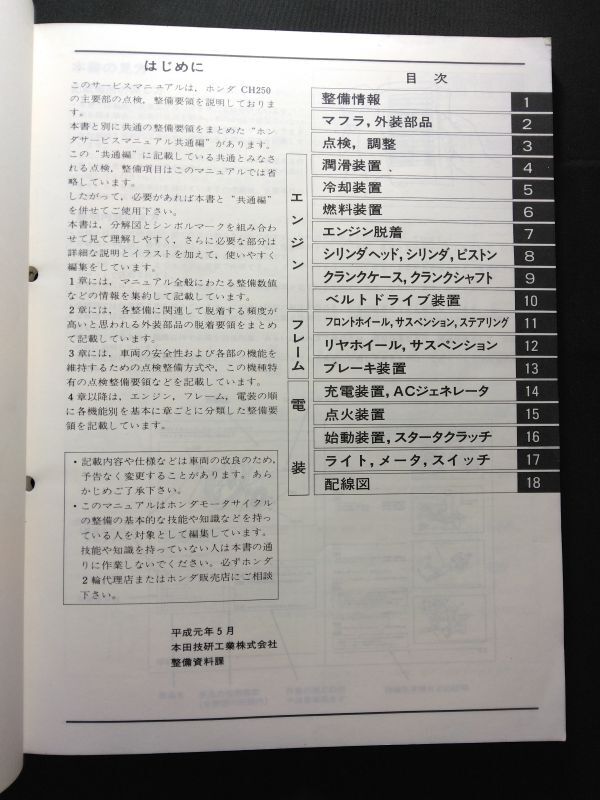 はじめに
このサービスマニュアルは，ホンダ CH250
の主要部の点検，整備要領を説明しておりま
す。
本書と別に共通の整備要領をまとめた“ホン
ダサービスマニュアル共通編”があります。
この“共通編”に記載している共通とみなさ
れる点検，整備項目はこのマニュアルでは省
略しています。
したがって，必要があれば本書と“共通編”
を併せてご使用下さい。
本書は，分解図とシンボルマークを組み合わ
せて見て理解しやすく，さらに必要な部分は
詳細な説明とイラストを加えて，使いやすく
編集をしています。
1章には，マニュアル全般にわたる整備数値
などの情報を集約して記載しています。
2章には，各整備に関連して脱着する頻度が
高いと思われる外装部品の脱着要領をまとめ
て記載しています。
3章には，車両の安全性および各部の機能を
維持するための点検整備方式や，この機種特
有の点検整備要領などを記載しています。
4章以降は，エンジン，フレーム，電装の順
に各機能別を基本に章ごとに分類した整備要
領を記載しています。
・記載内容や仕様などは車両の改良のため，
予告なく変更することがあります。あら
かじめご了承下さい。
・このマニュアルはホンダモータサイクル
の整備の基本的な技能や知識などを持っ
ている人を対象として編集しています。
技能や知識を持っていない人は本書の通
りに作業しないでください。必ずホンダ
2輪代理店またはホンダ販売店にご相談
下さい。
平成元年5月
本田技研工業株式会社
整備資料課
目 次
整備情報 1
マフラ，外装部品 2
点検，調整 3
エンジン
潤滑装置 4
冷却装置 5
燃料装置 6
エンジン脱着 7
シリンダヘッド，シリンダ，ピストン 8
クランクケース，クランクシャフト 9
ベルトドライブ装置 10
フレーム
フロントホイール，サスペンション，ステアリング 11
リヤホイール，サスペンション 12
ブレーキ装置 13
電装
充電装置，ACジェネレータ 14
点火装置 15
始動装置，スタータクラッチ 16
ライト，メータ，スイッチ 17
配線図 18